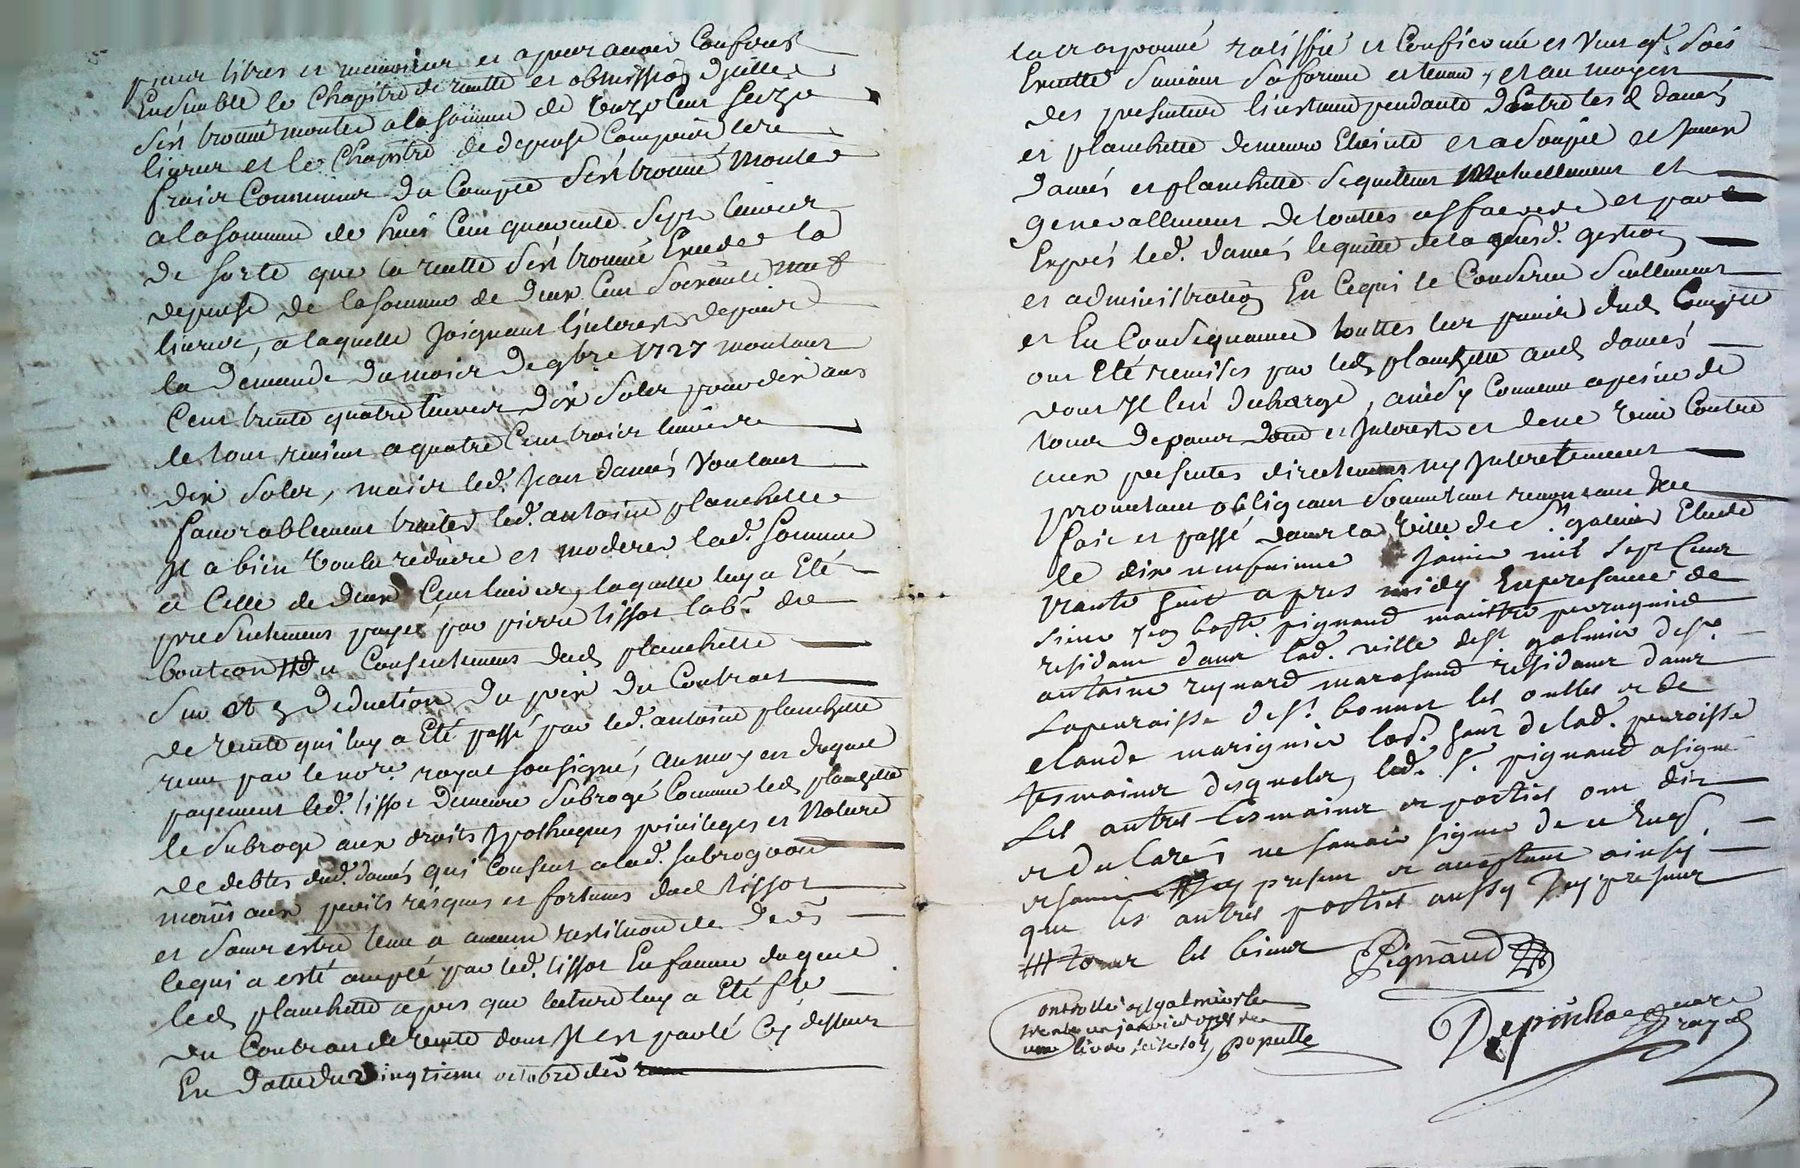 pieux libres et memoires et apres avoir Confere
Ensemble le Chapitre de recette et obmission
s'est trouvé monter a la somme de onze Cent seize
livres et le Chapitre de depense Compris les
frais Communs du Compte s'est trouvé monter
a la somme de huit Cent quarente sept livres
de sorte que la recette s'est trouvée Exceder la
depense de la somme de deux Cent soixante neuf
livres, a laquelle joignant l'interest depuis
la demande du mois de 9bre 1727 montant
Cent trente quatre livres dix solz pour dix ans
le tout revient a quatre Cent trois livres
dix solz, mais led. jean damés voulant
favorablement traiter led. antoine planchette
Il a bien voulu reduire et moderer lad. somme
a Celle de deux Cent livres, laquelle luy a Eté
presentement payée par pierre tissot lab.r de
du Consentement dud. planchette
sur et en deduction du prix du Contract
de vente qui luy a Eté passé par led. antoine planchette
reçu par le no.re royal sousigné, au moyen duquel
payement led. tissot demeure subrogé Comme led. planchette
le subroge aux droits hypotheques privileges et Nature
de debtes dud. damés qui Consent a lad. subrogaon
mais aux perils risques et fortunes dud. tissot
et sans estre tenu a aucune restitution de deniers
lequi a esté accepté par led. tissot En faveur duquel
led. planchette apres que lecture luy a Eté faite
du Contract de vente dont Il est parlé Cy dessus
En datte du vingtieme octobre der
la approuvé ratiffié et Confirmé et veut q.l sois
Executté suivant sa forme et teneur, et au moyen
des presentes l'instance pendante d'Entre les d. damés
et planchette demeure Eteinte et assoupie et Jean
damés et planchette se quittent Mutuellement et
generallement de touttes affaires et par
Exprés led. damés le quitte de la susd. gestion
et administration En Cequi le Conserne seullement
et En Consequance touttes les pieces dud. Compte
ont Eté remises par led. planchette aud. damés
dont Il l'en decharge, ainsy Convenu a peine de
tous depans dom. et Interests et de ne venir Contre
aux presentes directement ny Indirectement
promettant obligeant soumettant renonceant &c
fait et passé dans la ville de S.t galmier Etude
le dix neufvieme janvier mil sept Cent
trante huit apres midy En presance de
sieur jean bapt.e pignaud maittre perruquier
residant dans lad. ville de S.t galmier de S.r
antoine reynard marchand residant dans
la parroisse de S.t bonnet les oulles et de
claude marignier lab.r hant de lad. parroisse
tesmoins desquels, led. S.r pignaud a signé
Les autres tesmoins et parties ont dit
ne sçavoir signer de ce Enqs.
present et acceptant ainsy
que les autres parties aussy Icy presents
tous les biens
Pignaud
Controllé a S.t galmier le
trente un janvier 1738 reçu
une livre seize sols, Populle
Depinhac no.re royal